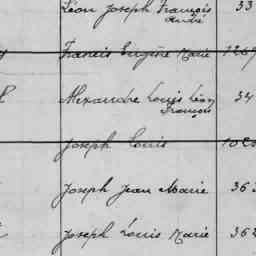 Léon Joseph François 33
André
Francis Eugène Marie 1269
Alexandre Louis Léon 34
François
Joseph Louis
Joseph Jean Marie 363
Joseph Louis Marie 362